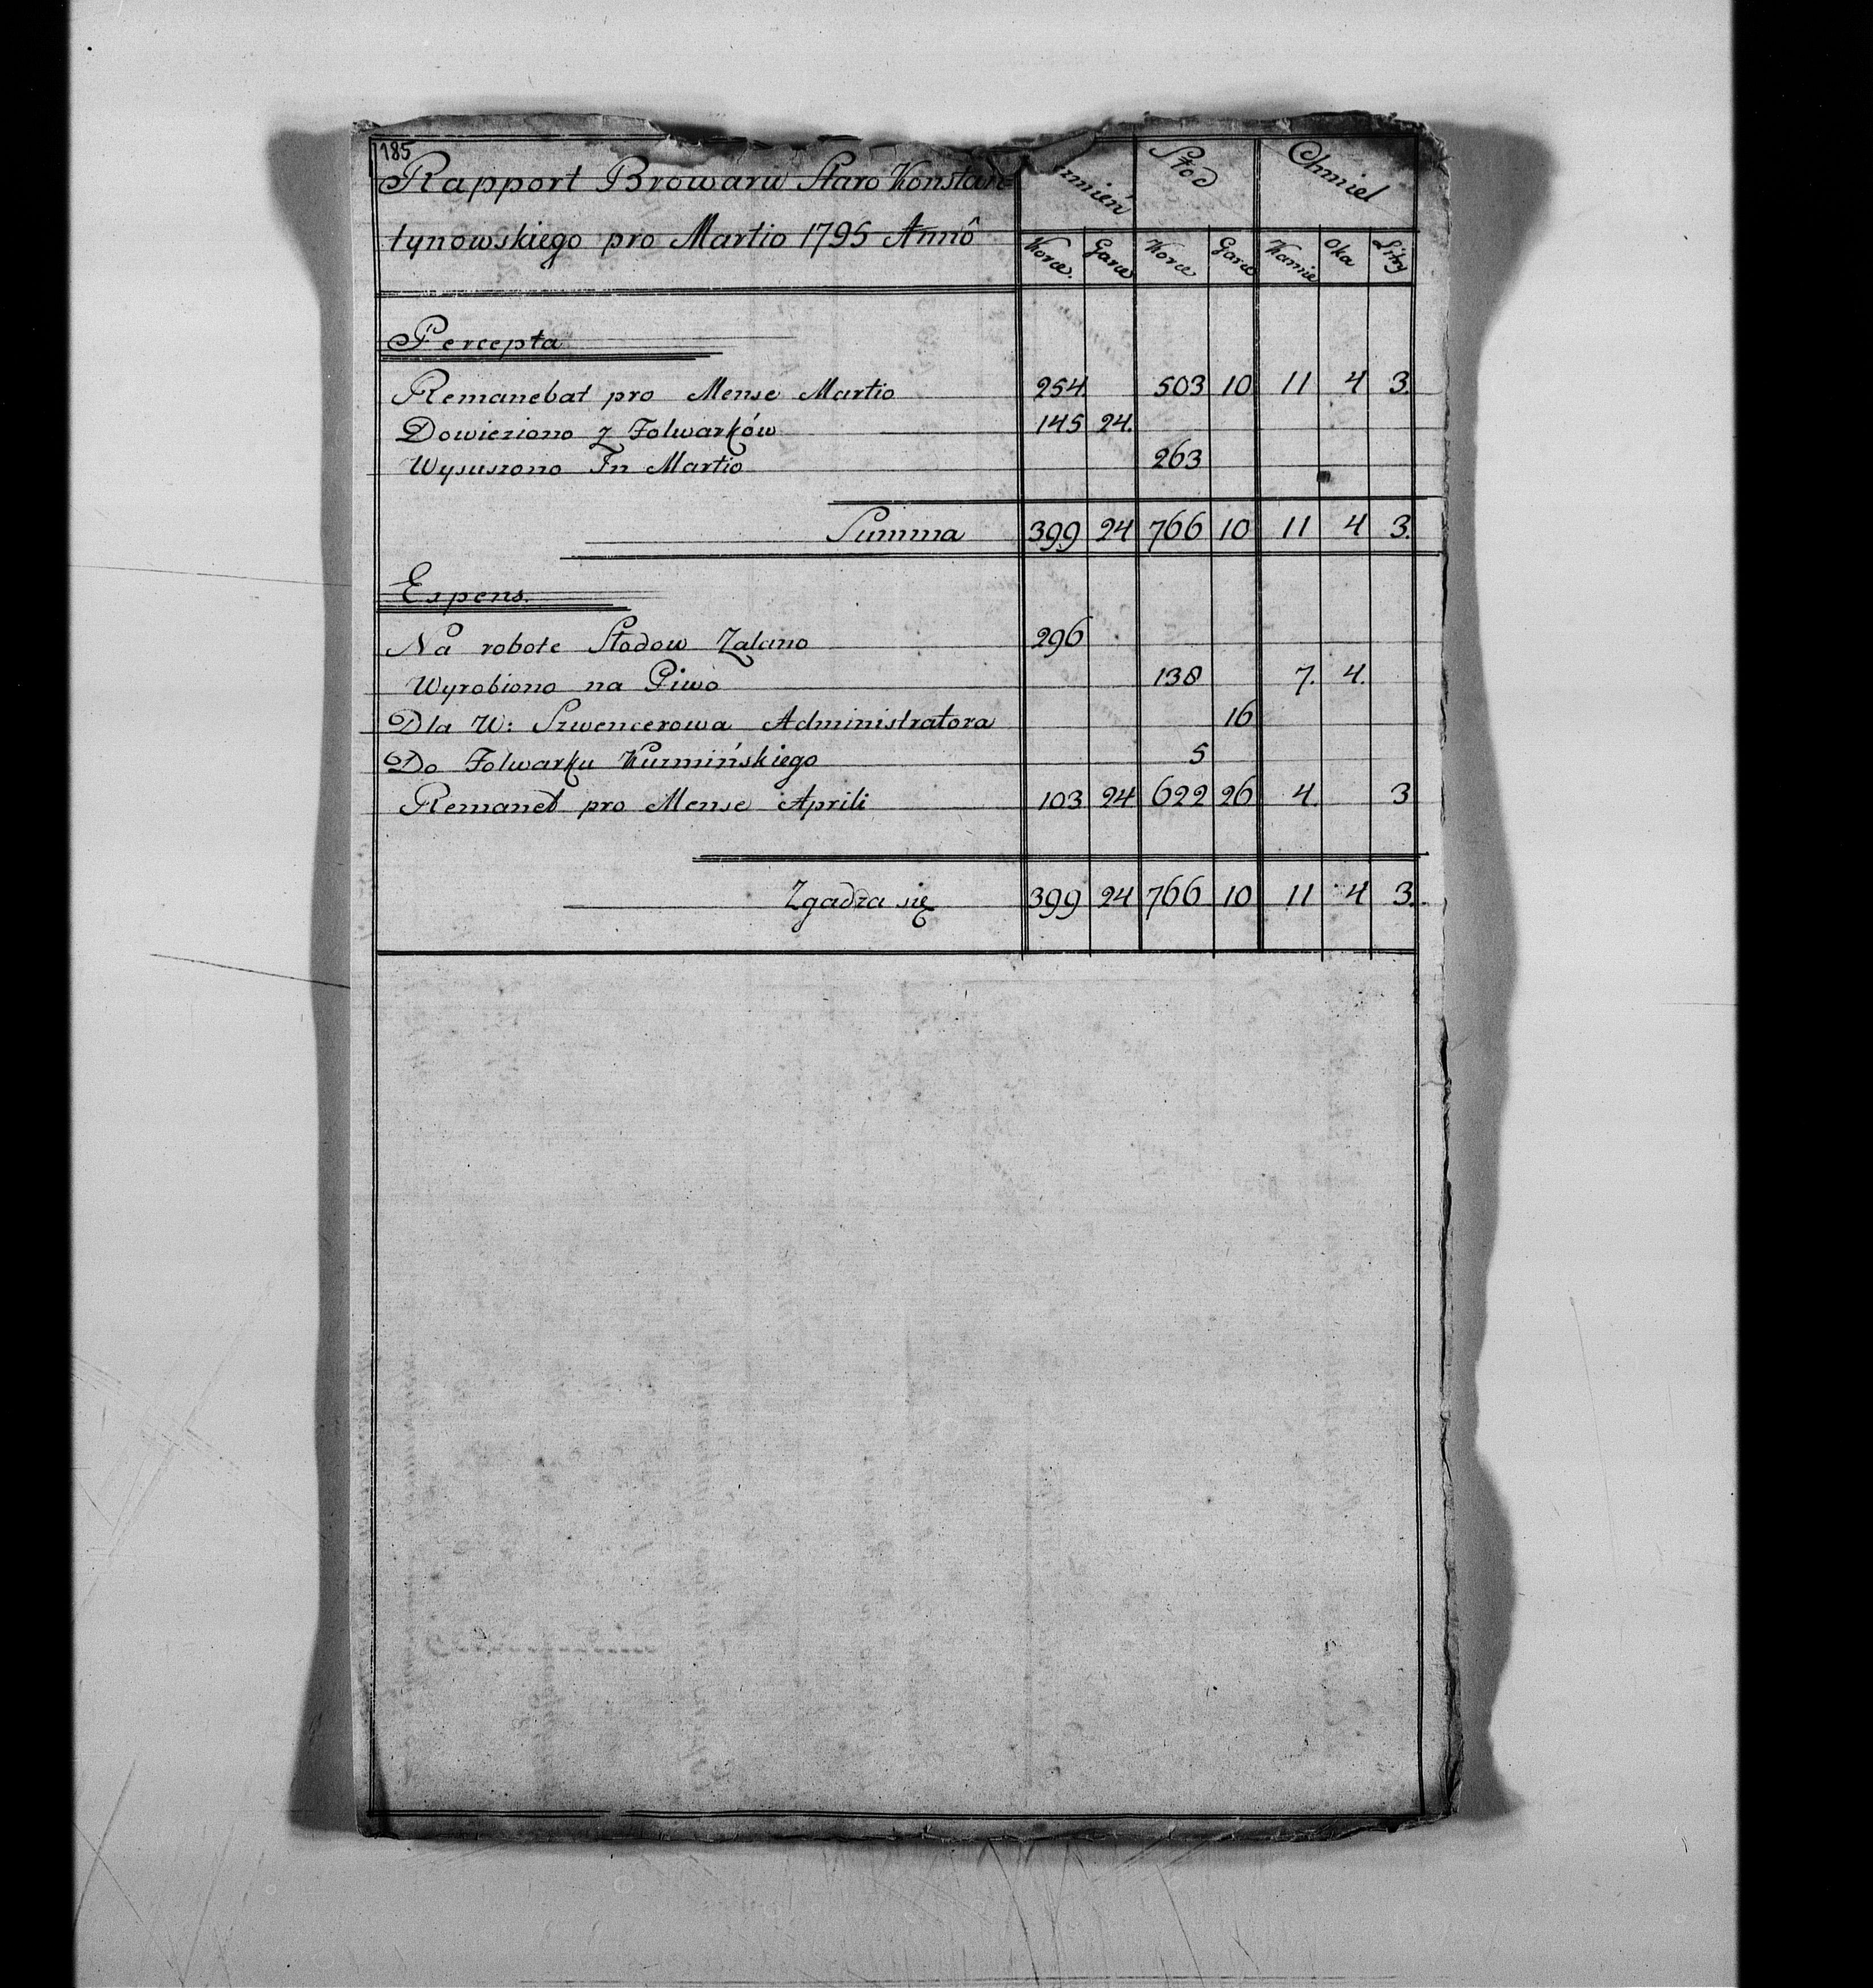 185
Rapport Browaru Staro Konstan=
tynowskiego pro Martio 1795 Annô
Słod Chmiel
Korce. Garce Korce Garce Kamie Oka Litry
Percepta
Remanebat pro Mense Martio 254. 503 10 11 4 3.
Dowieziono z Folwarków 145 24.
Wysuszono In Martio 263
Summa 399 24 766 10 11 4 3.
Expens.
Na robote Słodow Zalano 296
Wyrobiono na Piwo 138 7. 4.
Dla W: Szwencerowa Administratora 16
Do Folwarku Kuzmińskiego 5
Remanet pro Mense Aprili 103 24 622 26 4. 3
Zgadza się 399 24 766 10 11 4 3.